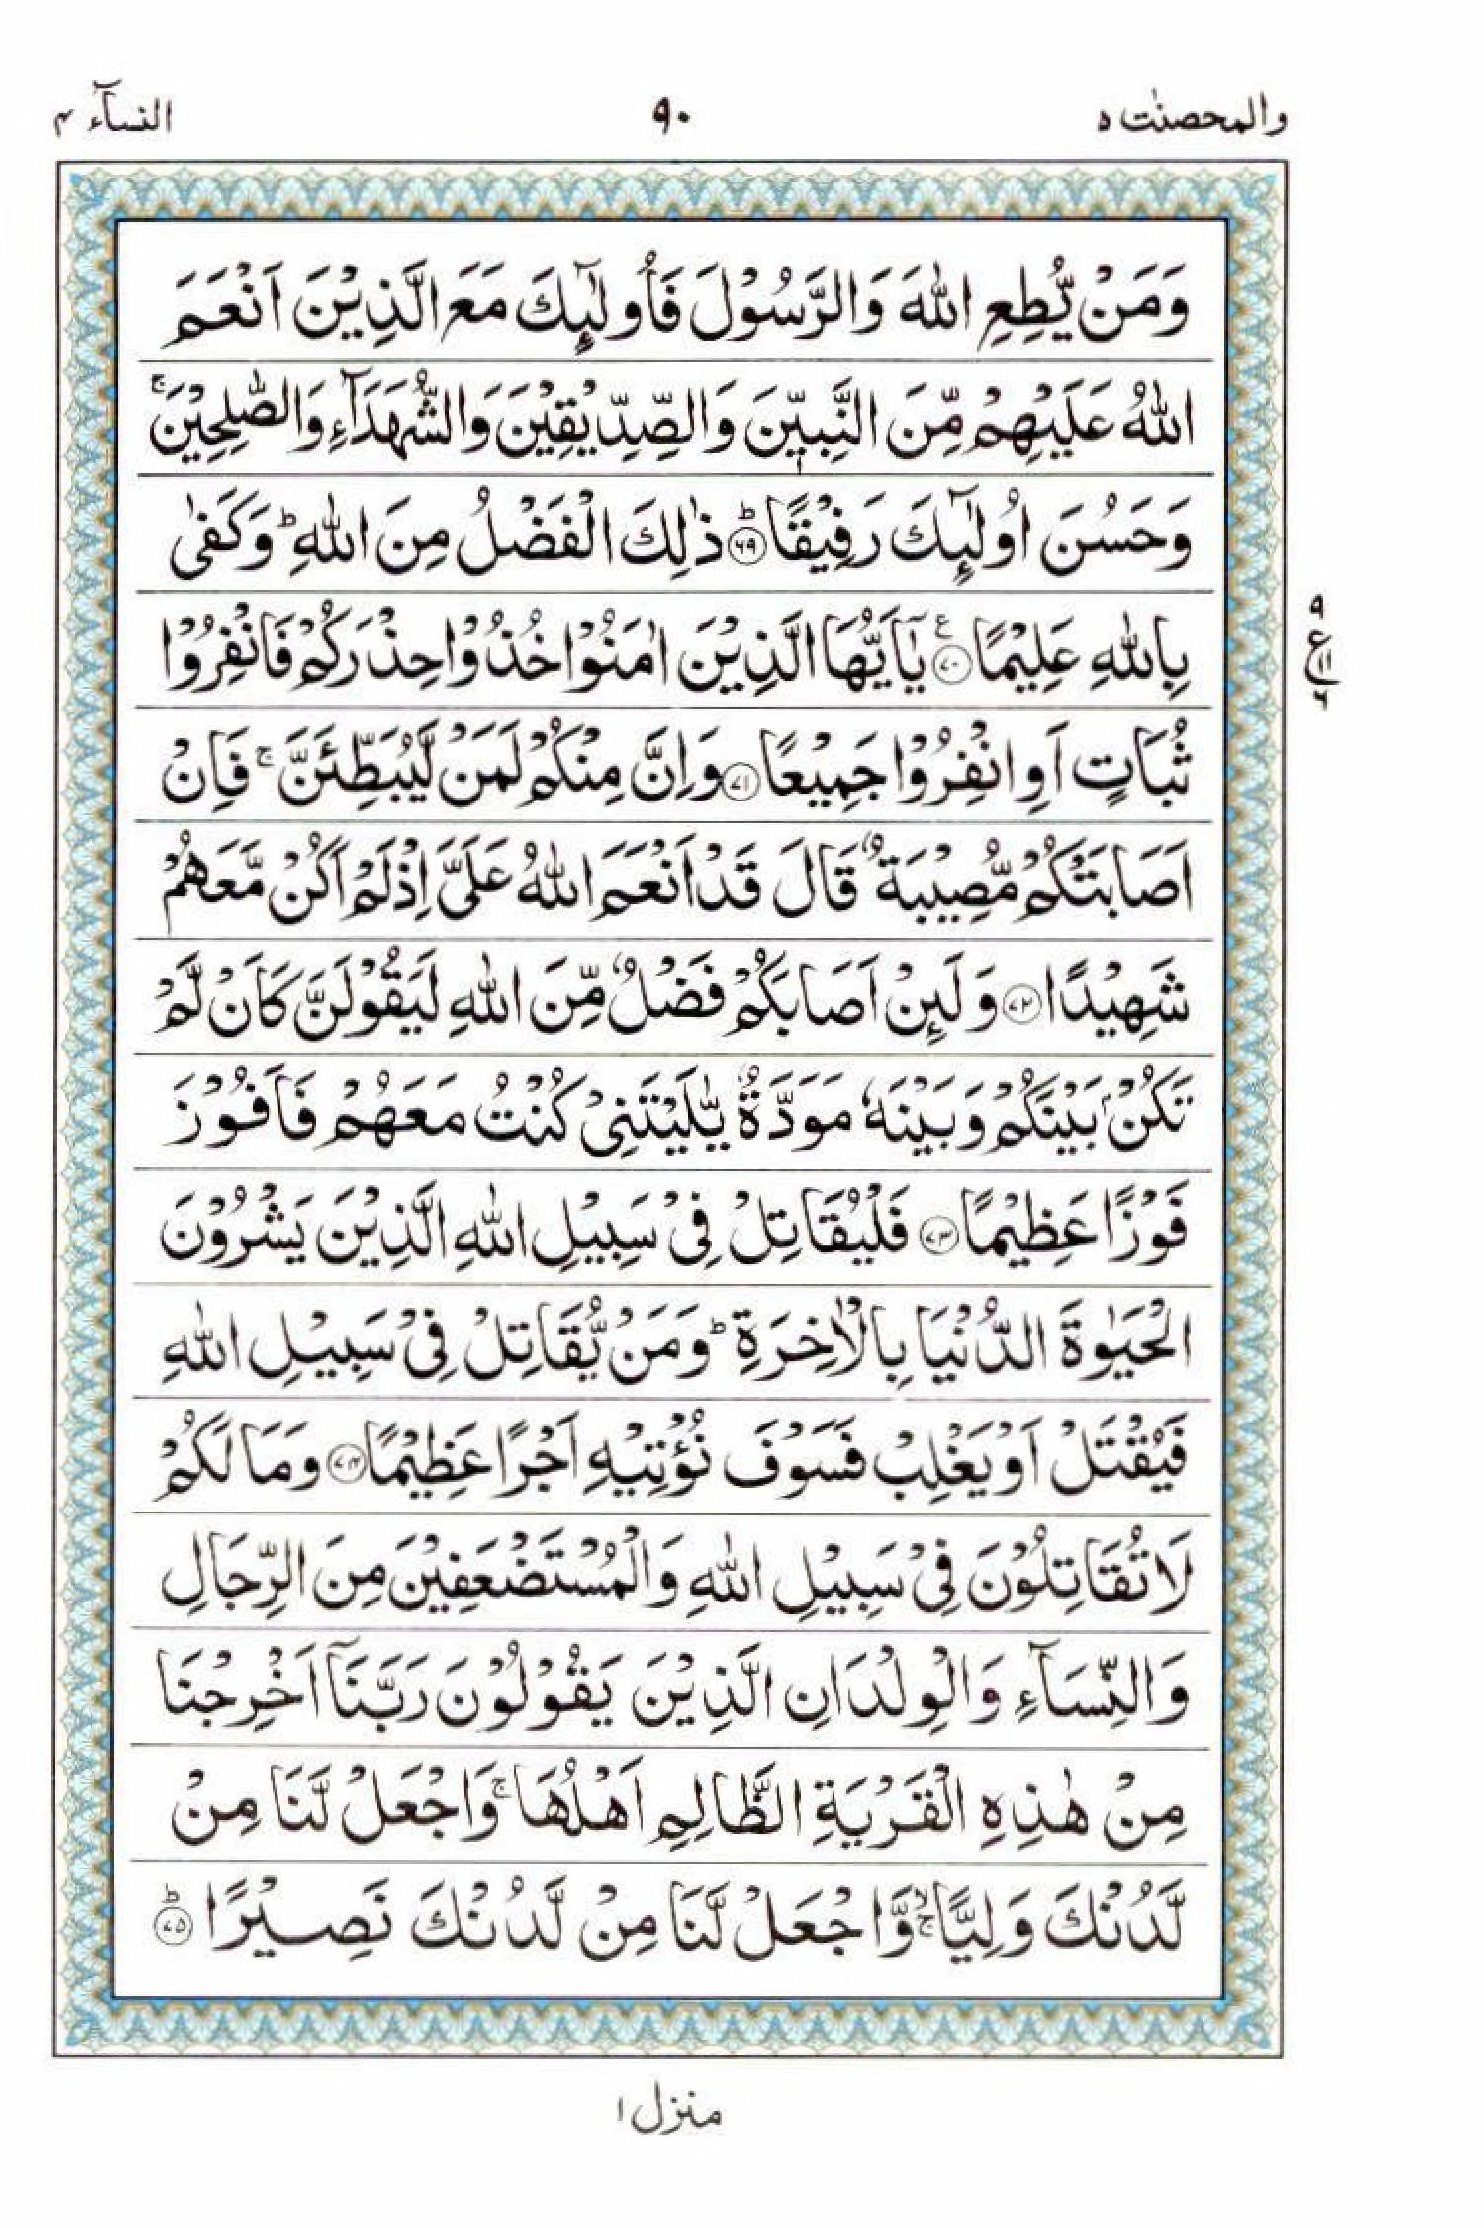 والمحصنٰت ٥
٩٠
النسآء ٤
وَمَنْ يُّطِعِ اللّٰهَ وَالرَّسُوْلَ فَاُولٰٓئِكَ مَعَ الَّذِيْنَ اَنْعَمَ
اللّٰهُ عَلَيْهِمْ مِّنَ النَّبِيّٖنَ وَالصِّدِّيْقِيْنَ وَالشُّهَدَآءِ وَالصّٰلِحِيْنَ ۚ
وَحَسُنَ اُولٰٓئِكَ رَفِيْقًا ؕ‏﴿۶۹﴾ ذٰلِكَ الْفَضْلُ مِنَ اللّٰهِ ؕ وَكَفٰى
بِاللّٰهِ عَلِيْمًا ﴿۷۰﴾ ع يٰۤاَيُّهَا الَّذِيْنَ اٰمَنُوْا خُذُوْا حِذْرَكُمْ فَانْفِرُوْا
ثُبَاتٍ اَوِ انْفِرُوْا جَمِيْعًا ﴿۷۱﴾ وَاِنَّ مِنْكُمْ لَمَنْ لَّيُبَطِّئَنَّ ۚ فَاِنْ
اَصَابَتْكُمْ مُّصِيْبَةٌ قَالَ قَدْ اَنْعَمَ اللّٰهُ عَلَيَّ اِذْ لَمْ اَكُنْ مَّعَهُمْ
شَهِيْدًا ﴿۷۲﴾ وَلَئِنْ اَصَابَكُمْ فَضْلٌ مِّنَ اللّٰهِ لَيَقُوْلَنَّ كَاَنْ لَّمْ
تَكُنْۢ بَيْنَكُمْ وَبَيْنَهٗ مَوَدَّةٌ يّٰلَيْتَنِيْ كُنْتُ مَعَهُمْ فَاَفُوْزَ
فَوْزًا عَظِيْمًا ﴿۷۳﴾ فَلْيُقَاتِلْ فِيْ سَبِيْلِ اللّٰهِ الَّذِيْنَ يَشْرُوْنَ
الْحَيٰوةَ الدُّنْيَا بِالْاٰخِرَةِ ؕ وَمَنْ يُّقَاتِلْ فِيْ سَبِيْلِ اللّٰهِ
فَيُقْتَلْ اَوْ يَغْلِبْ فَسَوْفَ نُؤْتِيْهِ اَجْرًا عَظِيْمًا ﴿۷۴﴾ وَمَا لَكُمْ
لَا تُقَاتِلُوْنَ فِيْ سَبِيْلِ اللّٰهِ وَالْمُسْتَضْعَفِيْنَ مِنَ الرِّجَالِ
وَالنِّسَآءِ وَالْوِلْدَانِ الَّذِيْنَ يَقُوْلُوْنَ رَبَّنَاۤ اَخْرِجْنَا
مِنْ هٰذِهِ الْقَرْيَةِ الظَّالِمِ اَهْلُهَا ۚ وَاجْعَلْ لَّنَا مِنْ
لَّدُنْكَ وَلِيًّا ۙۚ وَّاجْعَلْ لَّنَا مِنْ لَّدُنْكَ نَصِيْرًا ؕ‏﴿۷۵﴾
٩
ع
١١
٦
منزل ١